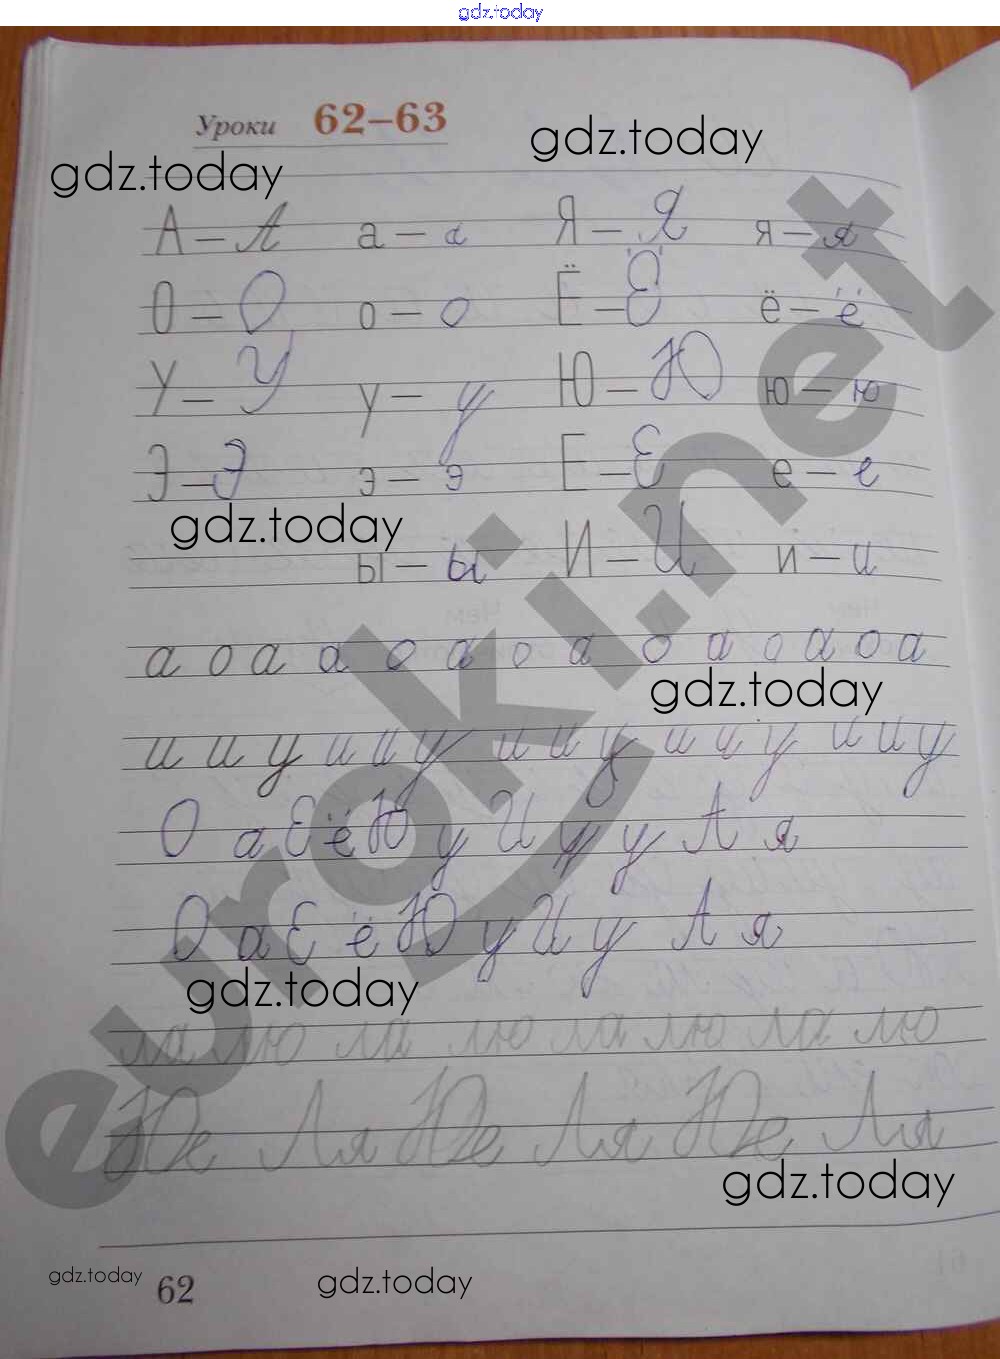 gdz.today
Уроки 62–63
gdz.today
gdz.today
А – А а – а Я – Я я – я
О – О о – о Ё – Ё ё – ё
У – У у – у Ю – Ю ю – ю
Э – Э э – э Е – Е е – е
gdz.today
ы – ы И – И и – и
а о а а о а о а о а о а о а
gdz.today
и и у и и у и и у и и у и и у
О а Е ё Ю у И у у А я
О а Е ё Ю у И у А я
gdz.today
ла лю ла лю ла лю ла лю
Юе Ля Юе Ля Юе Ля
gdz.today
gdz.today
62
gdz.today
euroki.net